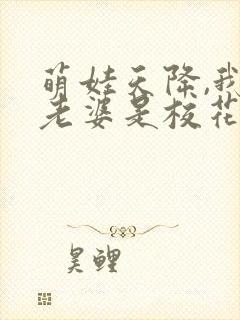 萌娃天降,我
老婆是校花
昊鲤